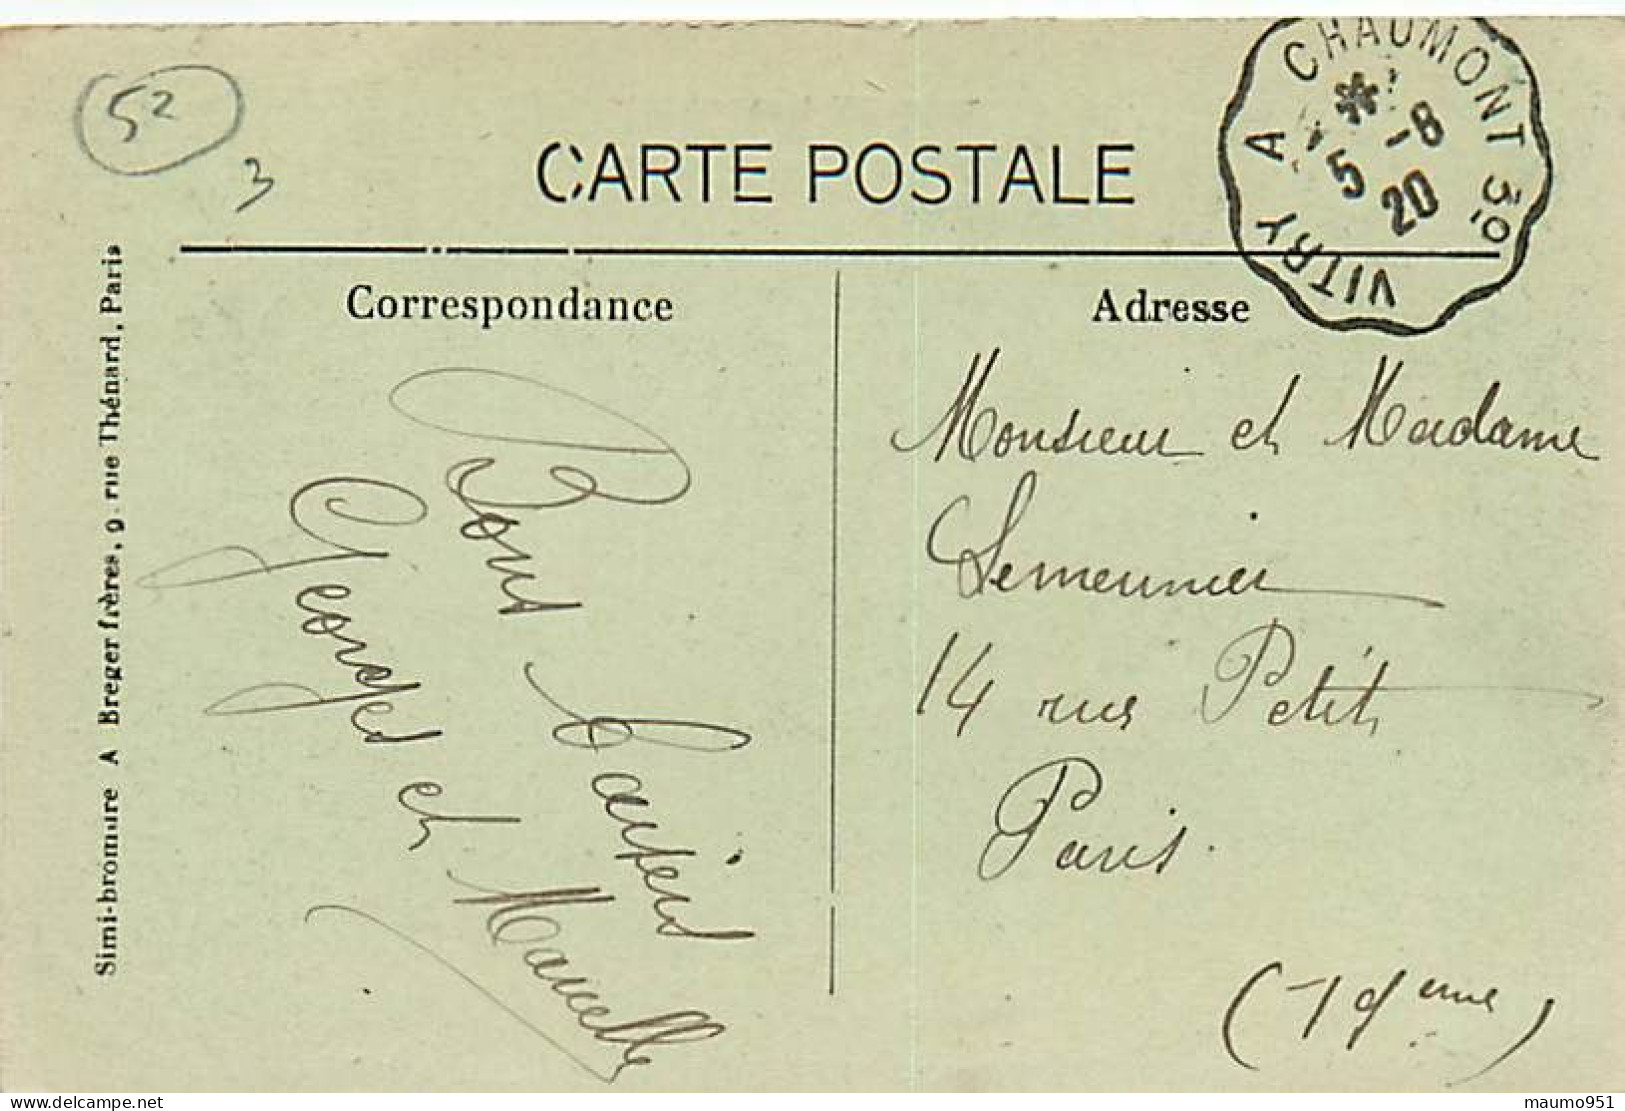 52
3
CARTE POSTALE
VITRY A CHAUMONT 3°
5 -8
20
Correspondance
Adresse
Simi-bromure A Breger frères, 9, rue Thénard, Paris
Bons baisers
Georges et Marcelle
Monsieur et Madame
Lemeunier
14 rue Petit
Paris.
(19eme)
maumo951